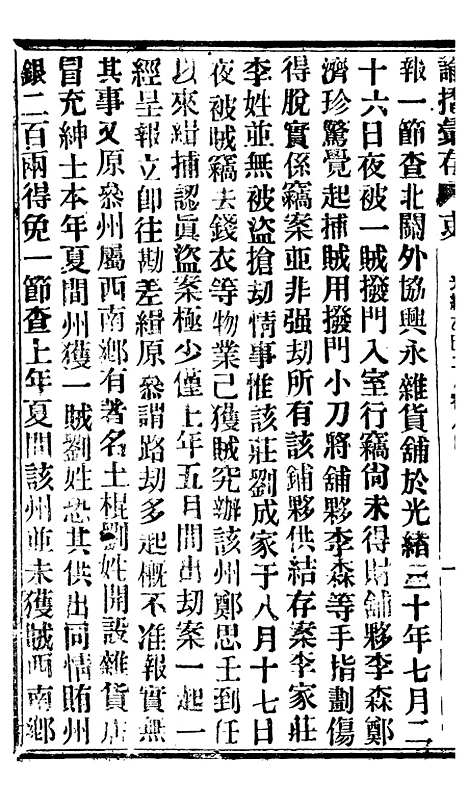 諭摺彙存
報一節查北關外協興永雜貨舖於光緒三十年七月二
十六日夜被一賊撥門入室行竊尙未得財舖夥李森鄭
濟珍驚覺起捕賊用撥門小刀將舖夥李森等手指劃傷
得脫實係竊案並非强劫所有該舖夥供結存案李家莊
李姓並無被盜搶劫情事惟該莊劉成家于八月十七日
夜被賊竊去錢衣等物業已獲賊究辦該州鄭思壬到任
以來緝捕認眞盜案極少僅上年五月間出劫案一起一
經呈報立卽往勘差緝原叅謂路劫多起槪不准報實無
其事又原叅州屬西南鄕有著名土棍劉姓開設雜貨店
冒充紳士本年夏間州獲一賊劉姓恐其供出同情賄州
銀二百兩得免一節查上年夏間該州並未獲賊西南鄕